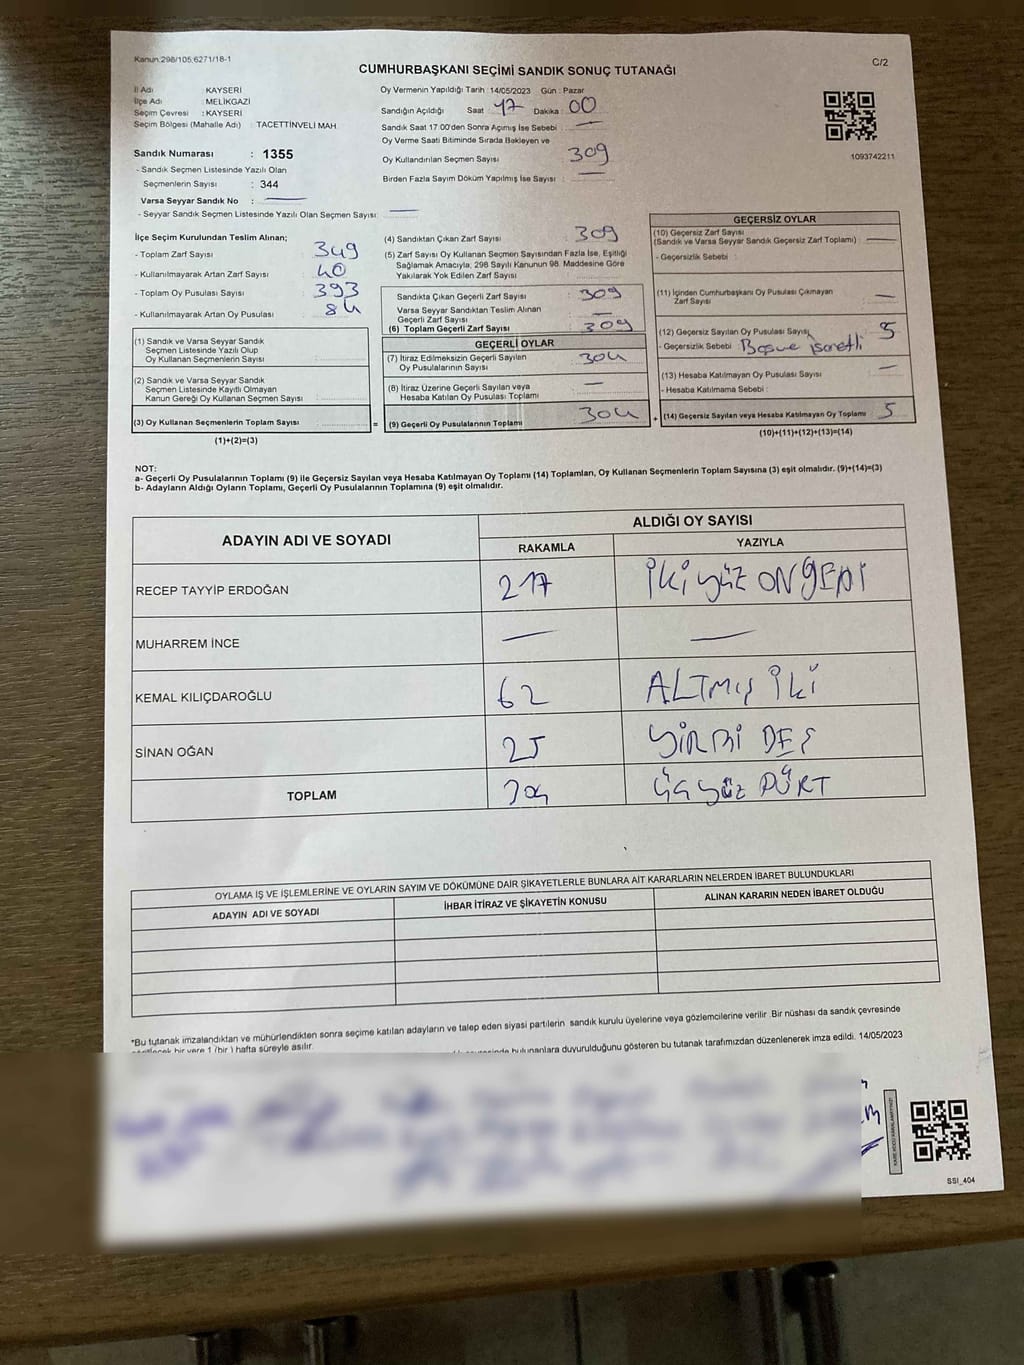 Kanun:298/105;6271/18-1
C/2
CUMHURBAŞKANI SEÇİMİ SANDIK SONUÇ TUTANAĞI
İl Adı : KAYSERİ
İlçe Adı : MELİKGAZİ
Seçim Çevresi : KAYSERİ
Seçim Bölgesi (Mahalle Adı) : TACETTİNVELİ MAH.
Sandık Numarası : 1355
- Sandık Seçmen Listesinde Yazılı Olan
Seçmenlerin Sayısı : 344
Varsa Seyyar Sandık No : —
- Seyyar Sandık Seçmen Listesinde Yazılı Olan Seçmen Sayısı: —
Oy Vermenin Yapıldığı Tarih : 14/05/2023 Gün : Pazar
Sandığın Açıldığı Saat : 17 Dakika : 00
Sandık Saat 17:00'den Sonra Açımış İse Sebebi : —
Oy Verme Saati Bitiminde Sırada Bekleyen ve
Oy Kullandırılan Seçmen Sayısı : 309
Birden Fazla Sayım Döküm Yapılmış İse Sayısı : —
1093742211
İlçe Seçim Kurulundan Teslim Alınan;
- Toplam Zarf Sayısı : 349
- Kullanılmayarak Artan Zarf Sayısı : 40
- Toplam Oy Pusulası Sayısı : 393
- Kullanılmayarak Artan Oy Pusulası : 84
(1) Sandık ve Varsa Seyyar Sandık
Seçmen Listesinde Yazılı Olup
Oy Kullanan Seçmenlerin Sayısı
(2) Sandık ve Varsa Seyyar Sandık
Seçmen Listesinde Kayıtlı Olmayan
Kanun Gereği Oy Kullanan Seçmen Sayısı
(3) Oy Kullanan Seçmenlerin Toplam Sayısı
(1)+(2)=(3)
(4) Sandıktan Çıkan Zarf Sayısı : 309
(5) Zarf Sayısı Oy Kullanan Seçmen Sayısından Fazla İse, Eşitliği
Sağlamak Amacıyla, 298 Sayılı Kanunun 98. Maddesine Göre
Yakılarak Yok Edilen Zarf Sayısı
Sandıkta Çıkan Geçerli Zarf Sayısı : 309
Varsa Seyyar Sandıktan Teslim Alınan
Geçerli Zarf Sayısı : —
(6) Toplam Geçerli Zarf Sayısı : 309
GEÇERLİ OYLAR
(7) İtiraz Edilmeksizin Geçerli Sayılan
Oy Pusulalarının Sayısı 304
(8) İtiraz Üzerine Geçerli Sayılan veya
Hesaba Katılan Oy Pusulası Toplamı —
= (9) Geçerli Oy Pusulalarının Toplamı 304
GEÇERSİZ OYLAR
(10) Geçersiz Zarf Sayısı
(Sandık ve Varsa Seyyar Sandık Geçersiz Zarf Toplamı) —
- Geçersizlik Sebebi :
(11) İçinden Cumhurbaşkanı Oy Pusulası Çıkmayan
Zarf Sayısı —
(12) Geçersiz Sayılan Oy Pusulası Sayısı 5
- Geçersizlik Sebebi : Boş ve işaretli
(13) Hesaba Katılmayan Oy Pusulası Sayısı —
- Hesaba Katılmama Sebebi :
+ (14) Geçersiz Sayılan veya Hesaba Katılmayan Oy Toplamı 5
(10)+(11)+(12)+(13)=(14)
NOT:
a- Geçerli Oy Pusulalarının Toplamı (9) ile Geçersiz Sayılan veya Hesaba Katılmayan Oy Toplamı (14) Toplamları, Oy Kullanan Seçmenlerin Toplam Sayısına (3) eşit olmalıdır. (9)+(14)=(3)
b- Adayların Aldığı Oyların Toplamı, Geçerli Oy Pusulalarının Toplamına (9) eşit olmalıdır.
ADAYIN ADI VE SOYADI
ALDIĞI OY SAYISI
RAKAMLA YAZIYLA
RECEP TAYYİP ERDOĞAN 217 İKİ yüz ON YEDİ
MUHARREM İNCE — —
KEMAL KILIÇDAROĞLU 62 ALTMIŞ İKİ
SİNAN OĞAN 25 YİRMİ BEŞ
TOPLAM 304 üç yüz DÖRT
OYLAMA İŞ VE İŞLEMLERİNE VE OYLARIN SAYIM VE DÖKÜMÜNE DAİR ŞİKAYETLERLE BUNLARA AİT KARARLARIN NELERDEN İBARET BULUNDUKLARI
ADAYIN ADI VE SOYADI İHBAR İTİRAZ VE ŞİKAYETİN KONUSU ALINAN KARARIN NEDEN İBARET OLDUĞU
*Bu tutanak imzalandıktan ve mühürlendikten sonra seçime katılan adayların ve talep eden siyasi partilerin sandık kurulu üyelerine veya gözlemcilerine verilir .Bir nüshası da sandık çevresinde
bir yere 1 (bir ) hafta süreyle asılır.
bulunanlara duyurulduğunu gösteren bu tutanak tarafımızdan düzenlenerek imza edildi. 14/05/2023
SSI_404